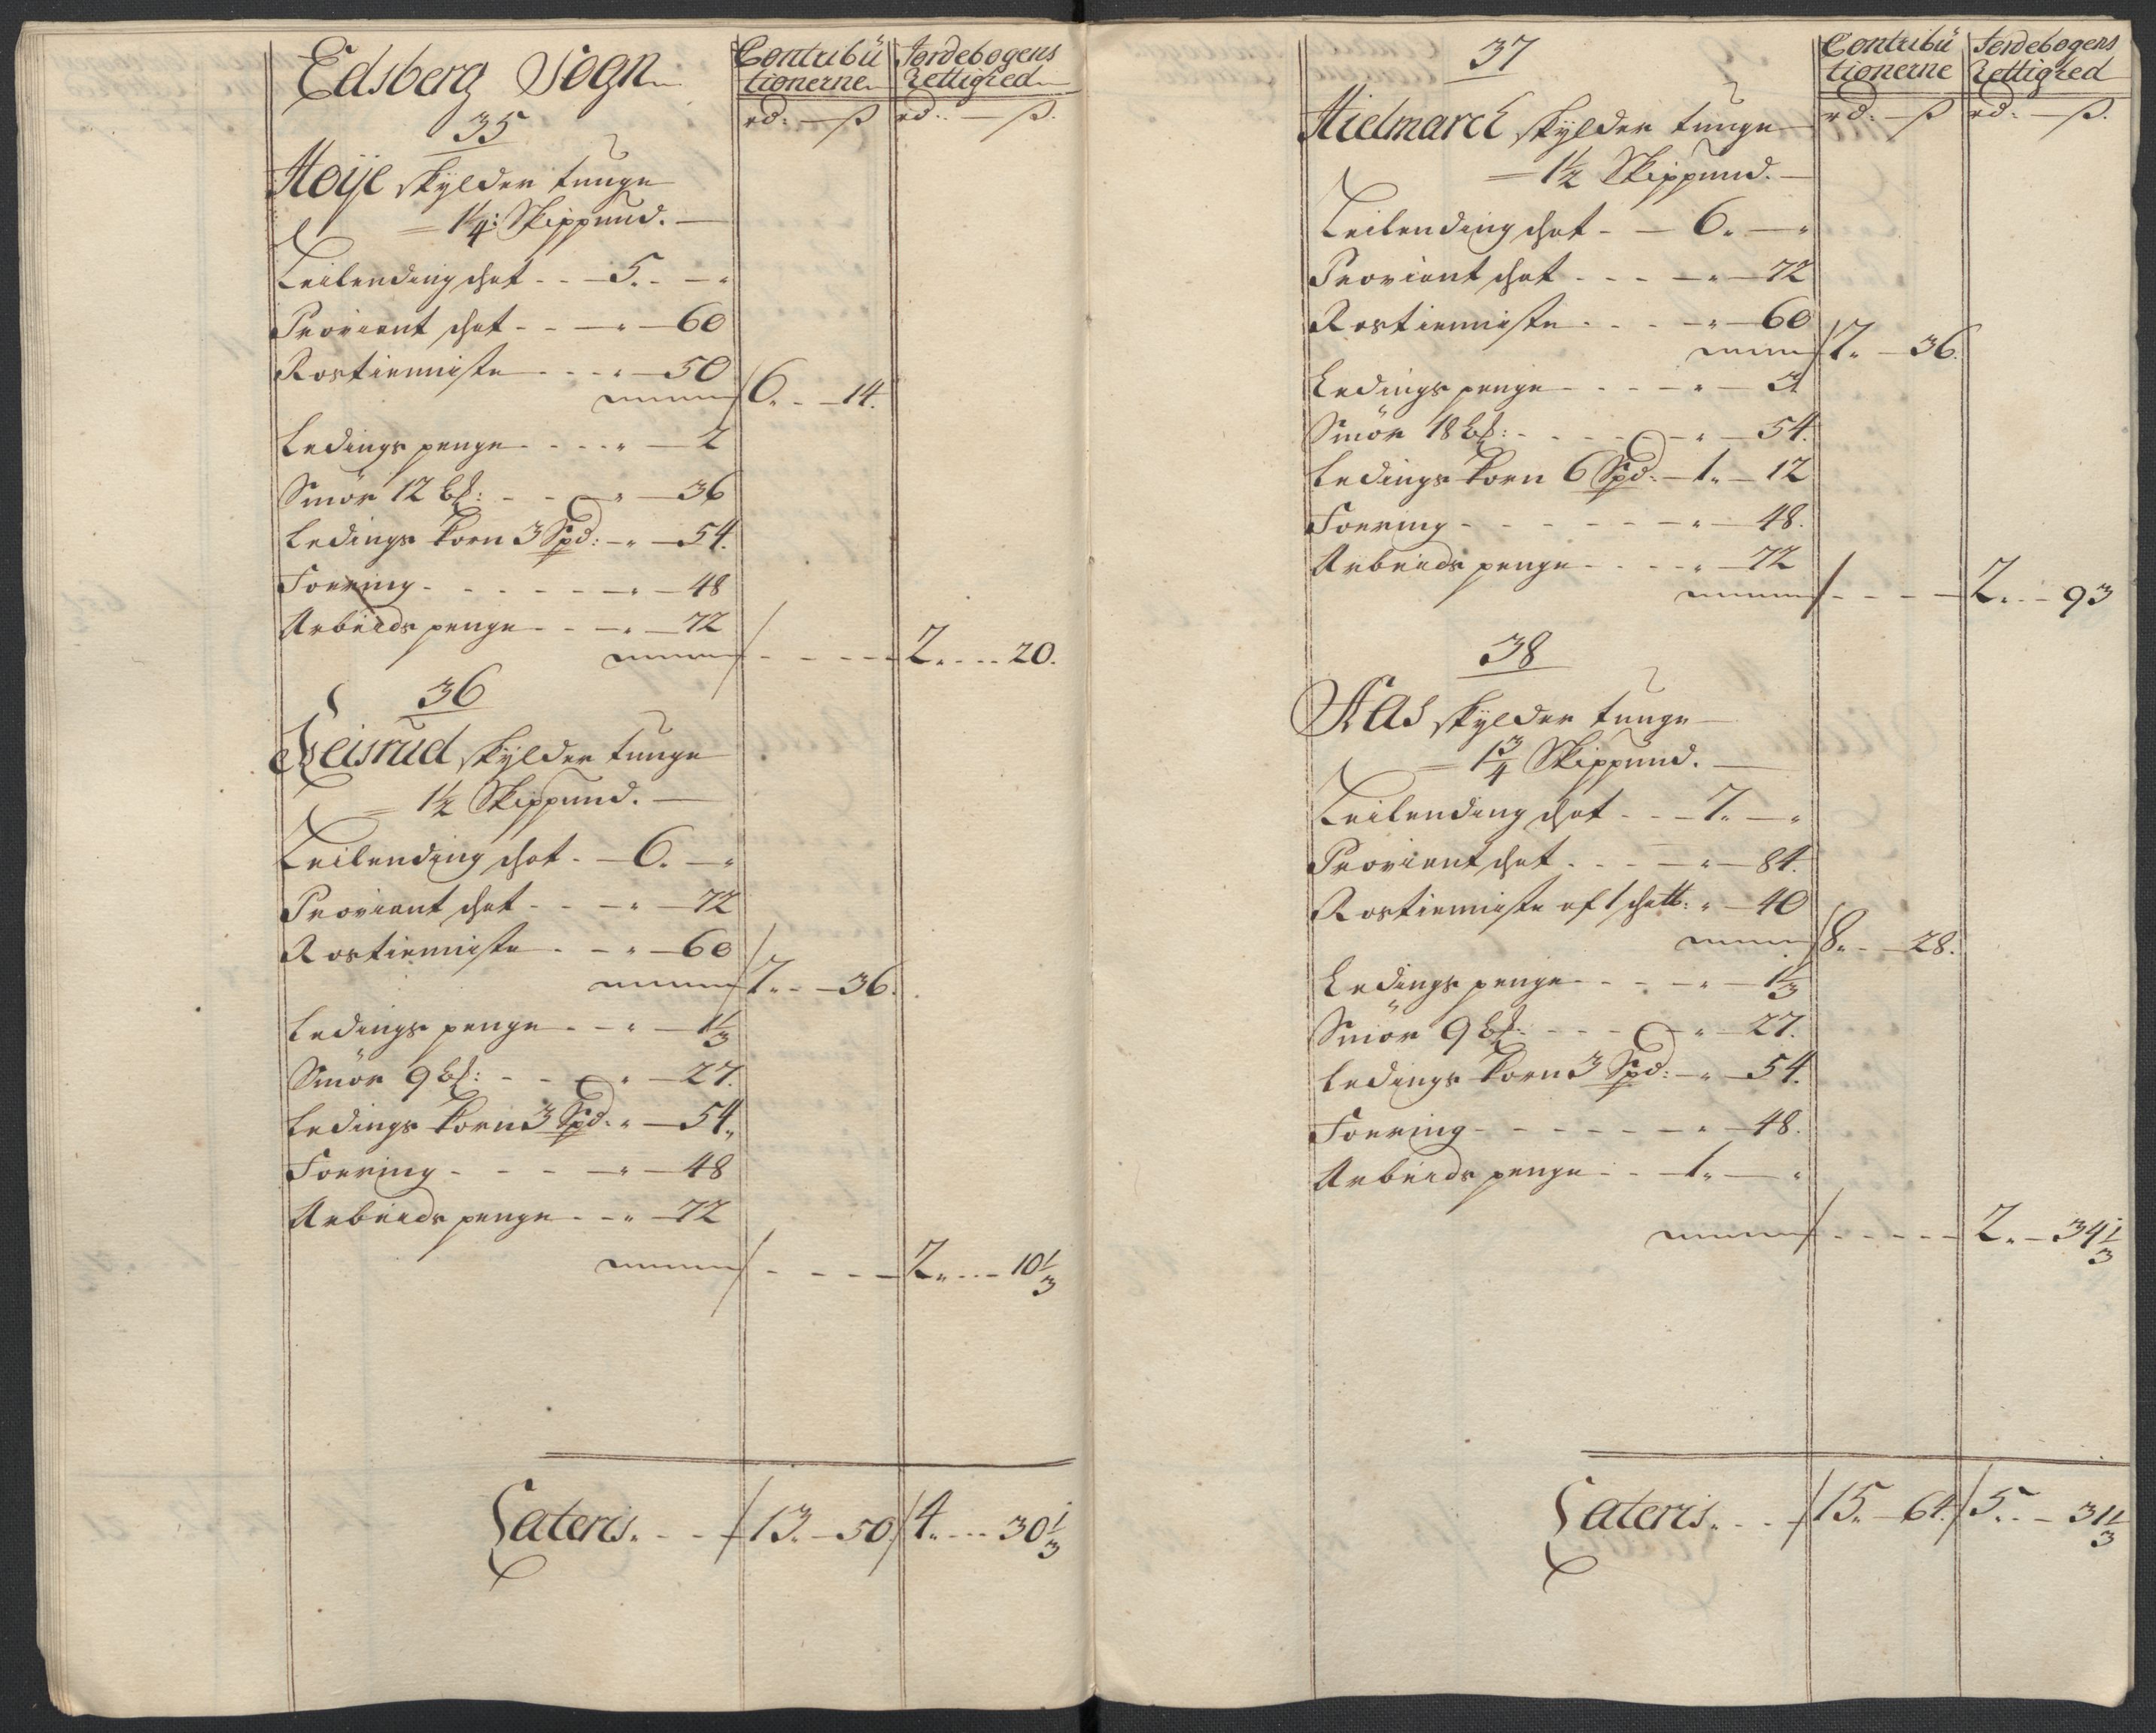 Edsberg Sogn
Contribu
tionerne
Jordebogens
Rettighed
rd: — ß
rd: — ß.
35
Høije skylder tunge
1¼: Skippund.
Leilending schat - - 5. - - „
Proviant schat - - - „ - 60
Rostienniste - - - „ - 50
6. - - 14.
Ledings penge - - - „ - 2
Smör 12 ß: - - „ - 36
Ledings korn 3 Spd: - „ - 54.
Foering - - - - - „ - 48
Arbeids penge - - - „ - 72
2. - - - 20.
36
Reisrud skylder tunge
1½ Skippund.
Leilending schat - 6. - „
Proviant schat - - - „ - 72
Rostienniste - - „ - 60
7. - - 36.
Ledings penge - - „ - 1⅓
Smör 9 ß: - - „ - 27.
Ledings korn 3 Spd: „ - 54„
Foering - - - - „ - 48
Arbeids penge - - „ - 72
2„ - - 10⅓
Lateris. - - - 13. - 50 4. - - 30⅓
37
Contribu
tionerne
Jordebogens
Rettighed
rd: — ß
rd: — ß.
Hielmarck skylder tunge
1½ Skippund.
Leilending schat - - 6. - „
Proviant schat - - - - „ - 72
Rostienniste - - - „ - 60
7. - 36.
Ledings penge - - - - „ - 3
Smör 18 ß: - - - - „ - 54.
Ledings korn 6 Spd: - 1. - 12
Foering - - - - - - „ - 48.
Arbeids penge - - - „ - 72
2. - - 93
38
Aas skylder tunge
1¾ Skippund.
Leilending schat - - - 7. - „
Proviant schat - - - - „ - 84.
Rostienniste af 1 schatt: „ - 40
8. - - 28.
Ledings penge - - - „ - 1⅓
Smör 9 ß: - - - - „ - 27.
Ledings korn 3 Spd: - „ - 54.
Foering - - - - - - „ - 48.
Arbeids penge - - 1. - „
2. - 34⅓
Lateris. - - - 15. - 64. 5. - - 31⅓